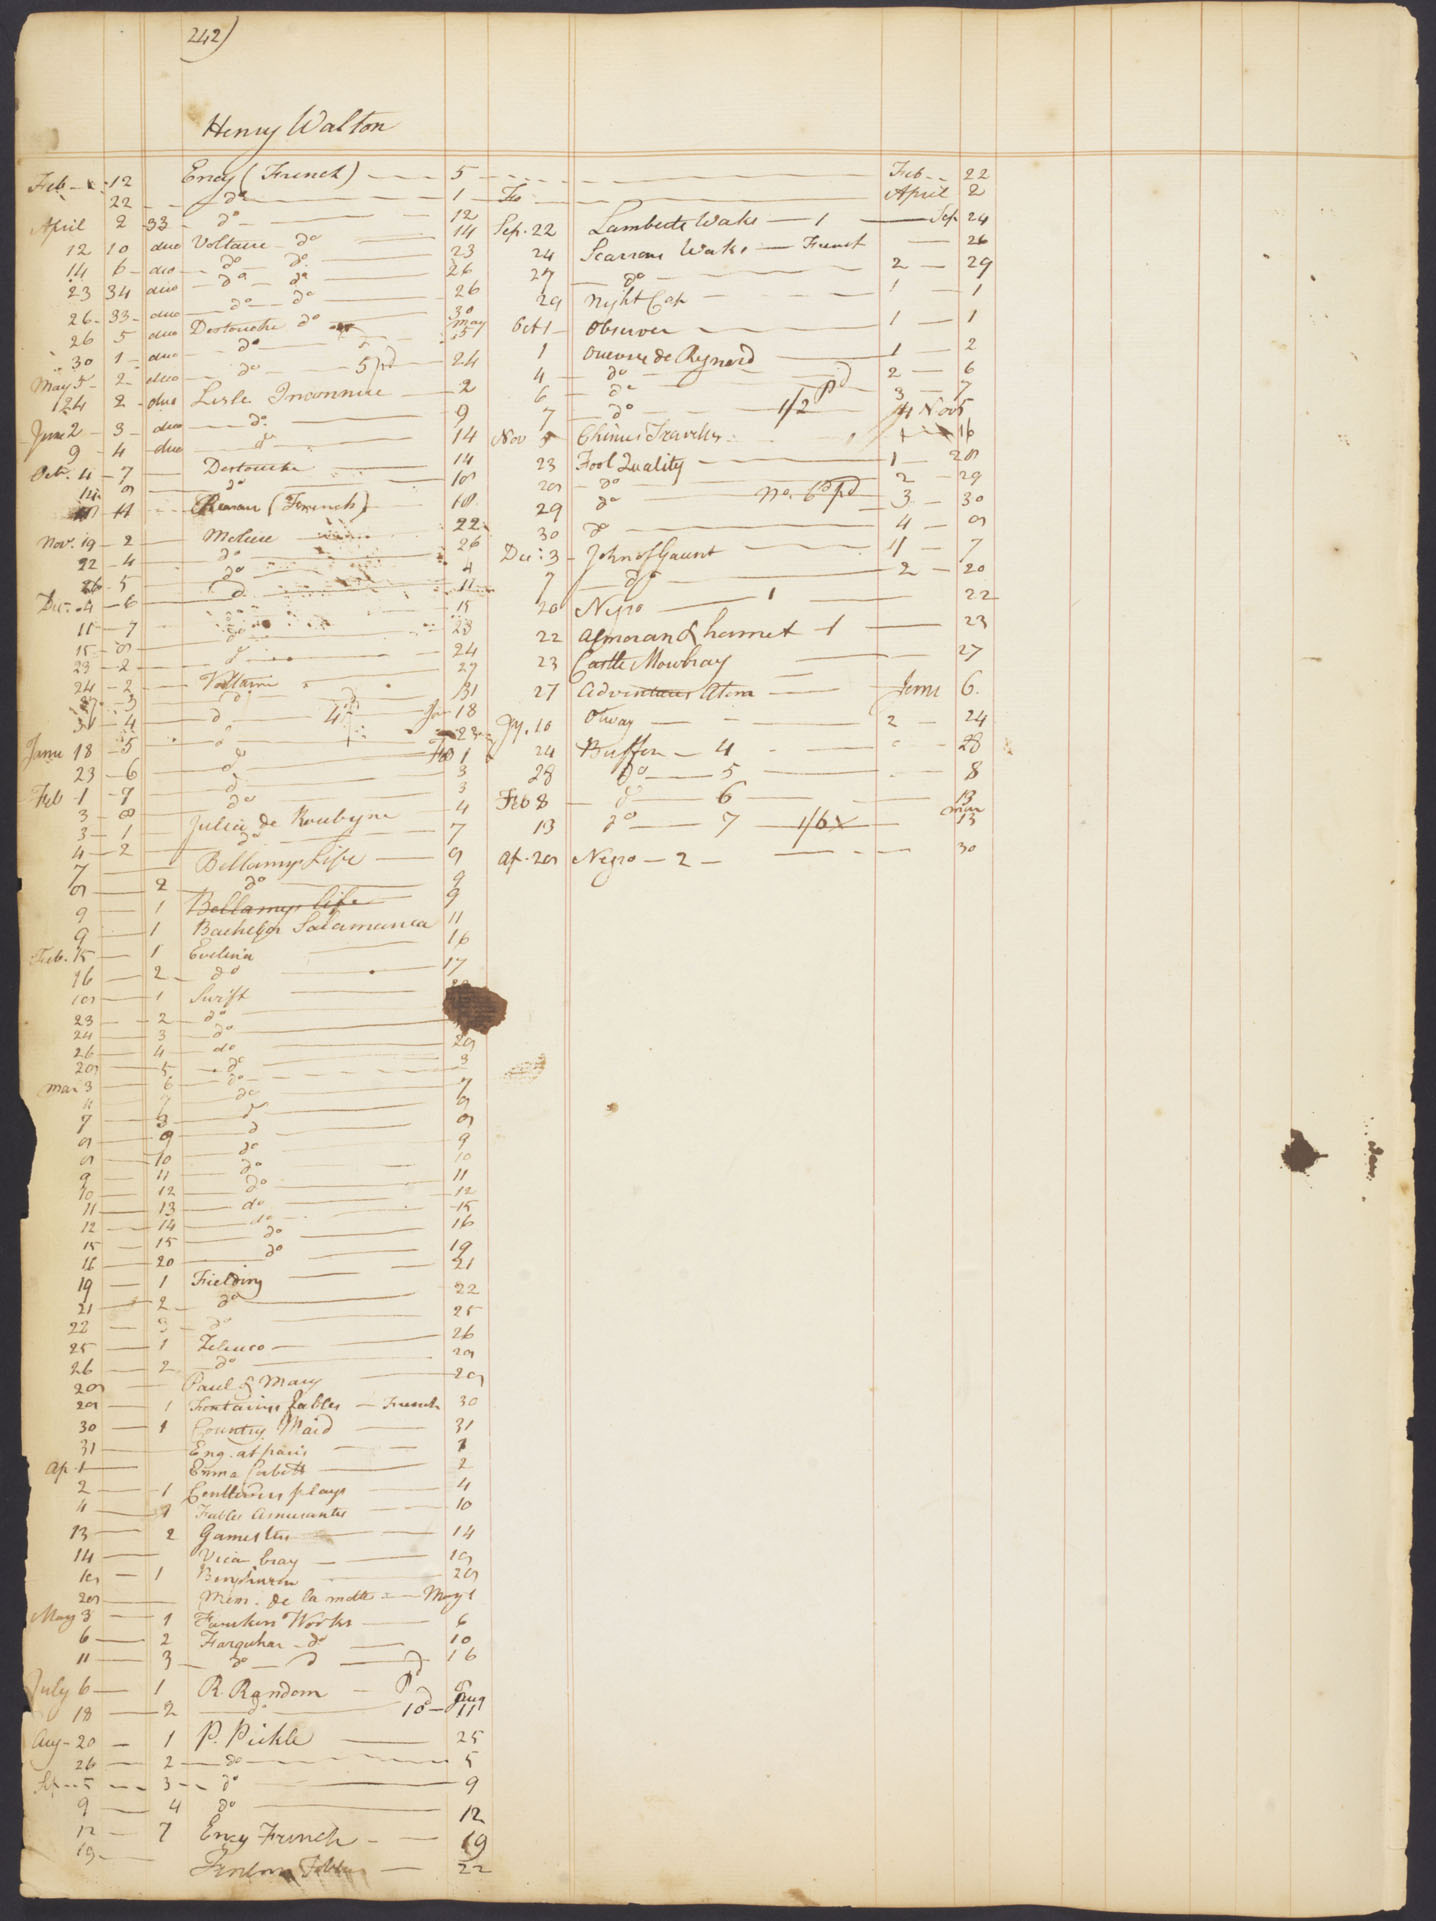 242)
Henry Walton
Feb 12 Ency (French) 5
22 do 1
April 2 33 do 12
12 10 duo Voltaire do 14
14 6 duo do do 23
23 34 duo do do 26
26 33 duo do do 26
26 5 duo Destouche do 30
30 1 duo do May 5
May 5 2 duo do 5 pd 24
24 2 duo Lisle Inconnue 2
June 2 3 duo do 9
9 4 duo do 14
Oct. 4 7 Destouche 14
14 8 do 18
(French) 18
Nov. 19 2 Moliere 22
22 4 do 26
26 5 do 4
Dec. 4 6 do 11
11 7 do 15
15 8 do 23
23 2 do 24
24 2 Voltaire 27
27 3 do 31
31 4 do 4 Jan 18
Janu 18 5 do 23
23 6 do Feb 1
Feb 1 7 do 3
3 8 do 3
3 1 Julia de Roubigne 4
4 2 do 7
7 Bellamys Life 8
8 2 do 9
9 1 Bellamys Life 9
9 1 Bachelor Salamanca 11
Feb. 15 1 Evelina 16
16 2 do 17
18 1 Swift
23 2 do
24 3 do
26 4 do 28
28 5 do 3
Mar 3 6 do
4 7 do 7
7 8 do 8
8 9 do 8
8 10 do 9
9 11 do 10
10 12 do 11
11 13 do 12
12 14 do 15
15 15 do 16
16 20 do 19
19 1 Fielding 21
21 2 do 22
22 3 do 25
25 1 Zeluco 26
26 2 do 28
28 Paul & Mary 28
28 1 Fontaines fables French 30
30 1 Country Maid 31
31 Eng. at paris 1
Ap. 1 Emma Corbett 2
2 1 Centlivres plays 4
4 1 Fables Amusantes 10
13 2 Gamesters 14
14 Vicar bray 18
18 1 28
28 Mem. de la motte May 1
May 3 1 Works 6
6 2 Farquhar do 10
11 3 do do 16
July 6 1 R. Random Pd 8
18 2 do 10 Aug 11
Aug 20 1 P. Pickle 25
26 2 do 5
Sep 5 3 do 9
9 4 do 12
12 7 Ency French 19
19 22
Feb 22
Fe April 2
Sep. 22 Lamberts Waks 1 Sep 24
24 Scarrons Waks French 26
27 do 2 29
29 Night Cap 1 1
Oct 1 Observer 1 1
1 Ouevre de Regnard 1 2
4 do 2 6
6 do 3 7
7 do 1/2 Pd 4 Nov 5
Nov 5 Chinese Traveller 1 16
23 Fool Quality 1 28
28 do 2 29
29 do no. 6 pd 3 30
30 do 4 8
Dec: 3 John of Gaunt 1 7
7 do 2 20
20 Negro 1 22
22 Almoran & hamet 1 23
23 Castle Mowbray 27
27 Adventures Atom Janu 6.
Jy. 10 Otway 2 24
24 Buffon 4 28
28 do 5 8
Feb 8 do 6 13
13 do 7 1/6 Mar 13
Ap. 28 Negro 2 30